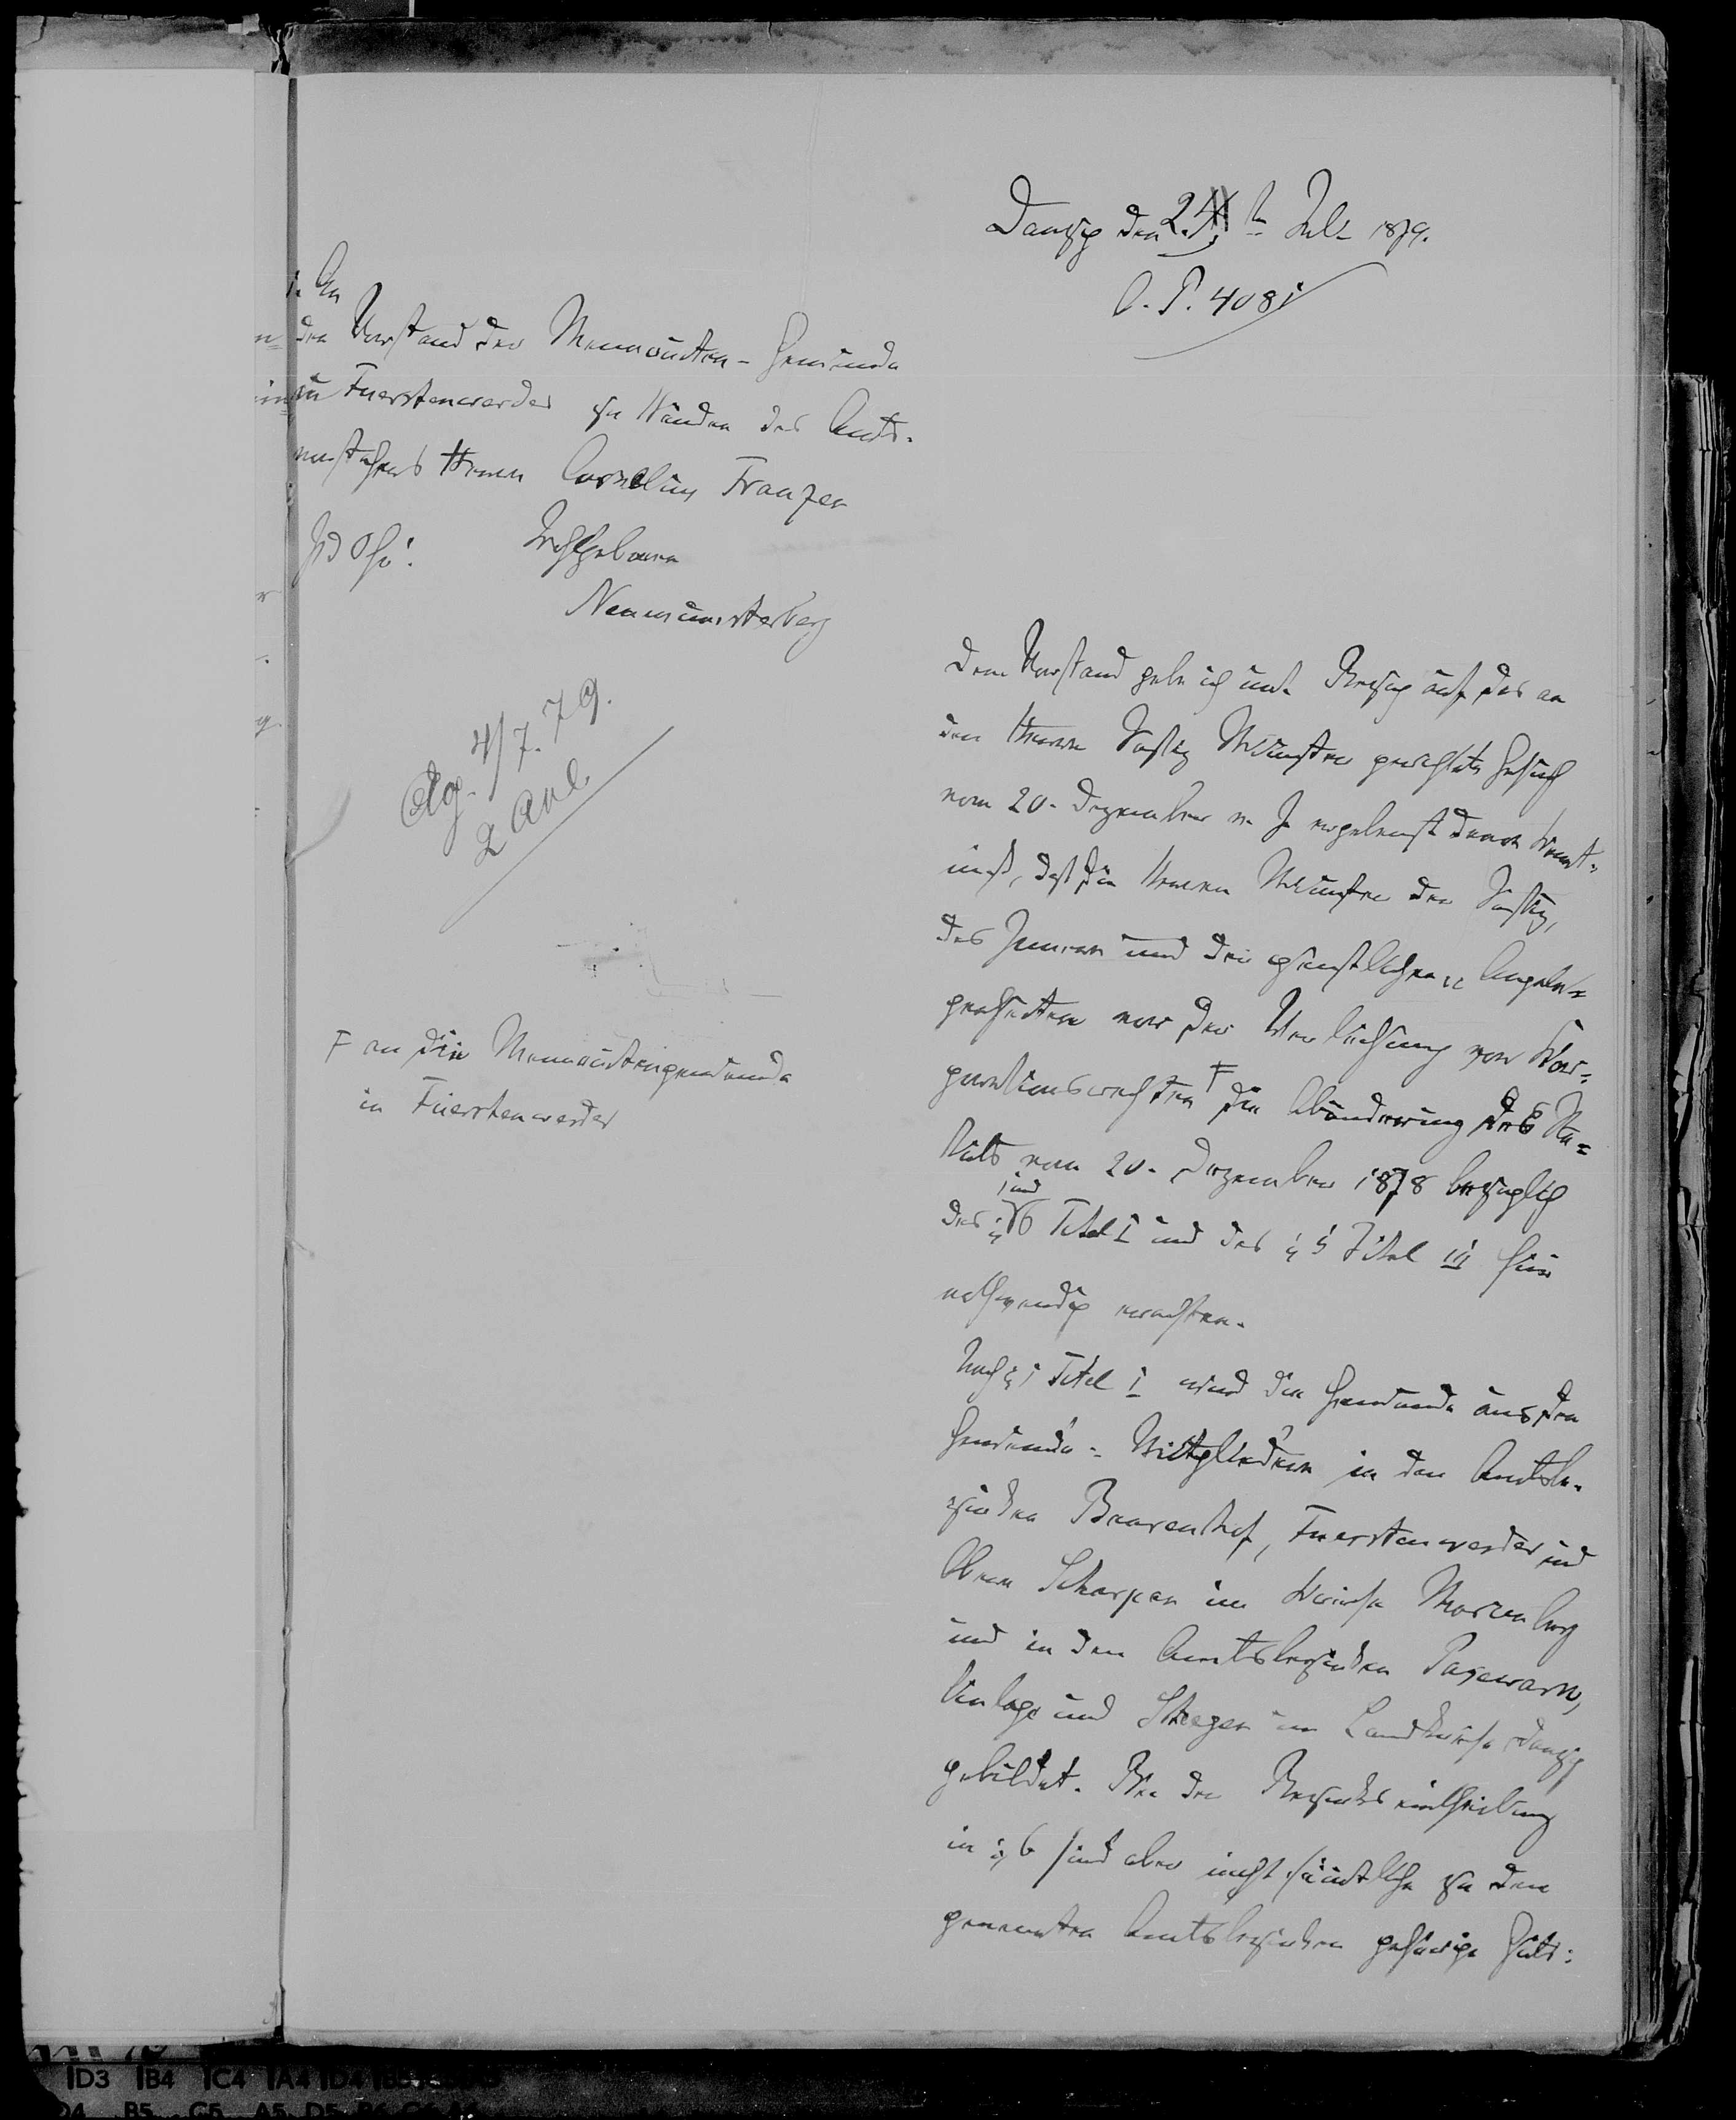 Danzig den 2. ten Juli 1879.
O. P. 4081
1. An
den Vorstand der Mennoniten-Gemeinde
zu Fuerstenwerder zu Händen des Amts-
vorstehers Herrn Cornelius Franzen
Wohlgeboren
Neumünsterberg
4/7.79.
2 Anl.
Dem Vorstand gebe ich unter Bezug auf das an
den Herrn Justiz Minister gerichtete Gesuch
vom 20. Dezember v. J. ergebenst davon Kennt-
niß, daß die Herren Minister der Justiz,
des Innern und der geistlichen pp Angele-
genheiten vor der Verleihung von Kor-
porationsrechten F die Abänderung des Sta-
tuts vom 20. Dezember 1878 bezüglich
1 und
des § 6 Titel I und des § 5 Titel III für
nothwendig erachten.
F an die Mennonitengemeinde
in Fuerstenwerder
Nach § 1 Titel I wird die Gemeinde aus den
Gemeinde-Mitgliedern in den Amtsbe-
zirken Baerenhof, Fuerstenwerder und
Scharpau im Kreise Marienburg
und in den Amtsbezirken Pasewark,
Einlage und Steegen im Landkreise Danzig
gebildet. Bei der Bezirkseintheilung
in § 6 sind aber nicht sämtliche zu den
genannten Amtsbezirken gehörige Guts-